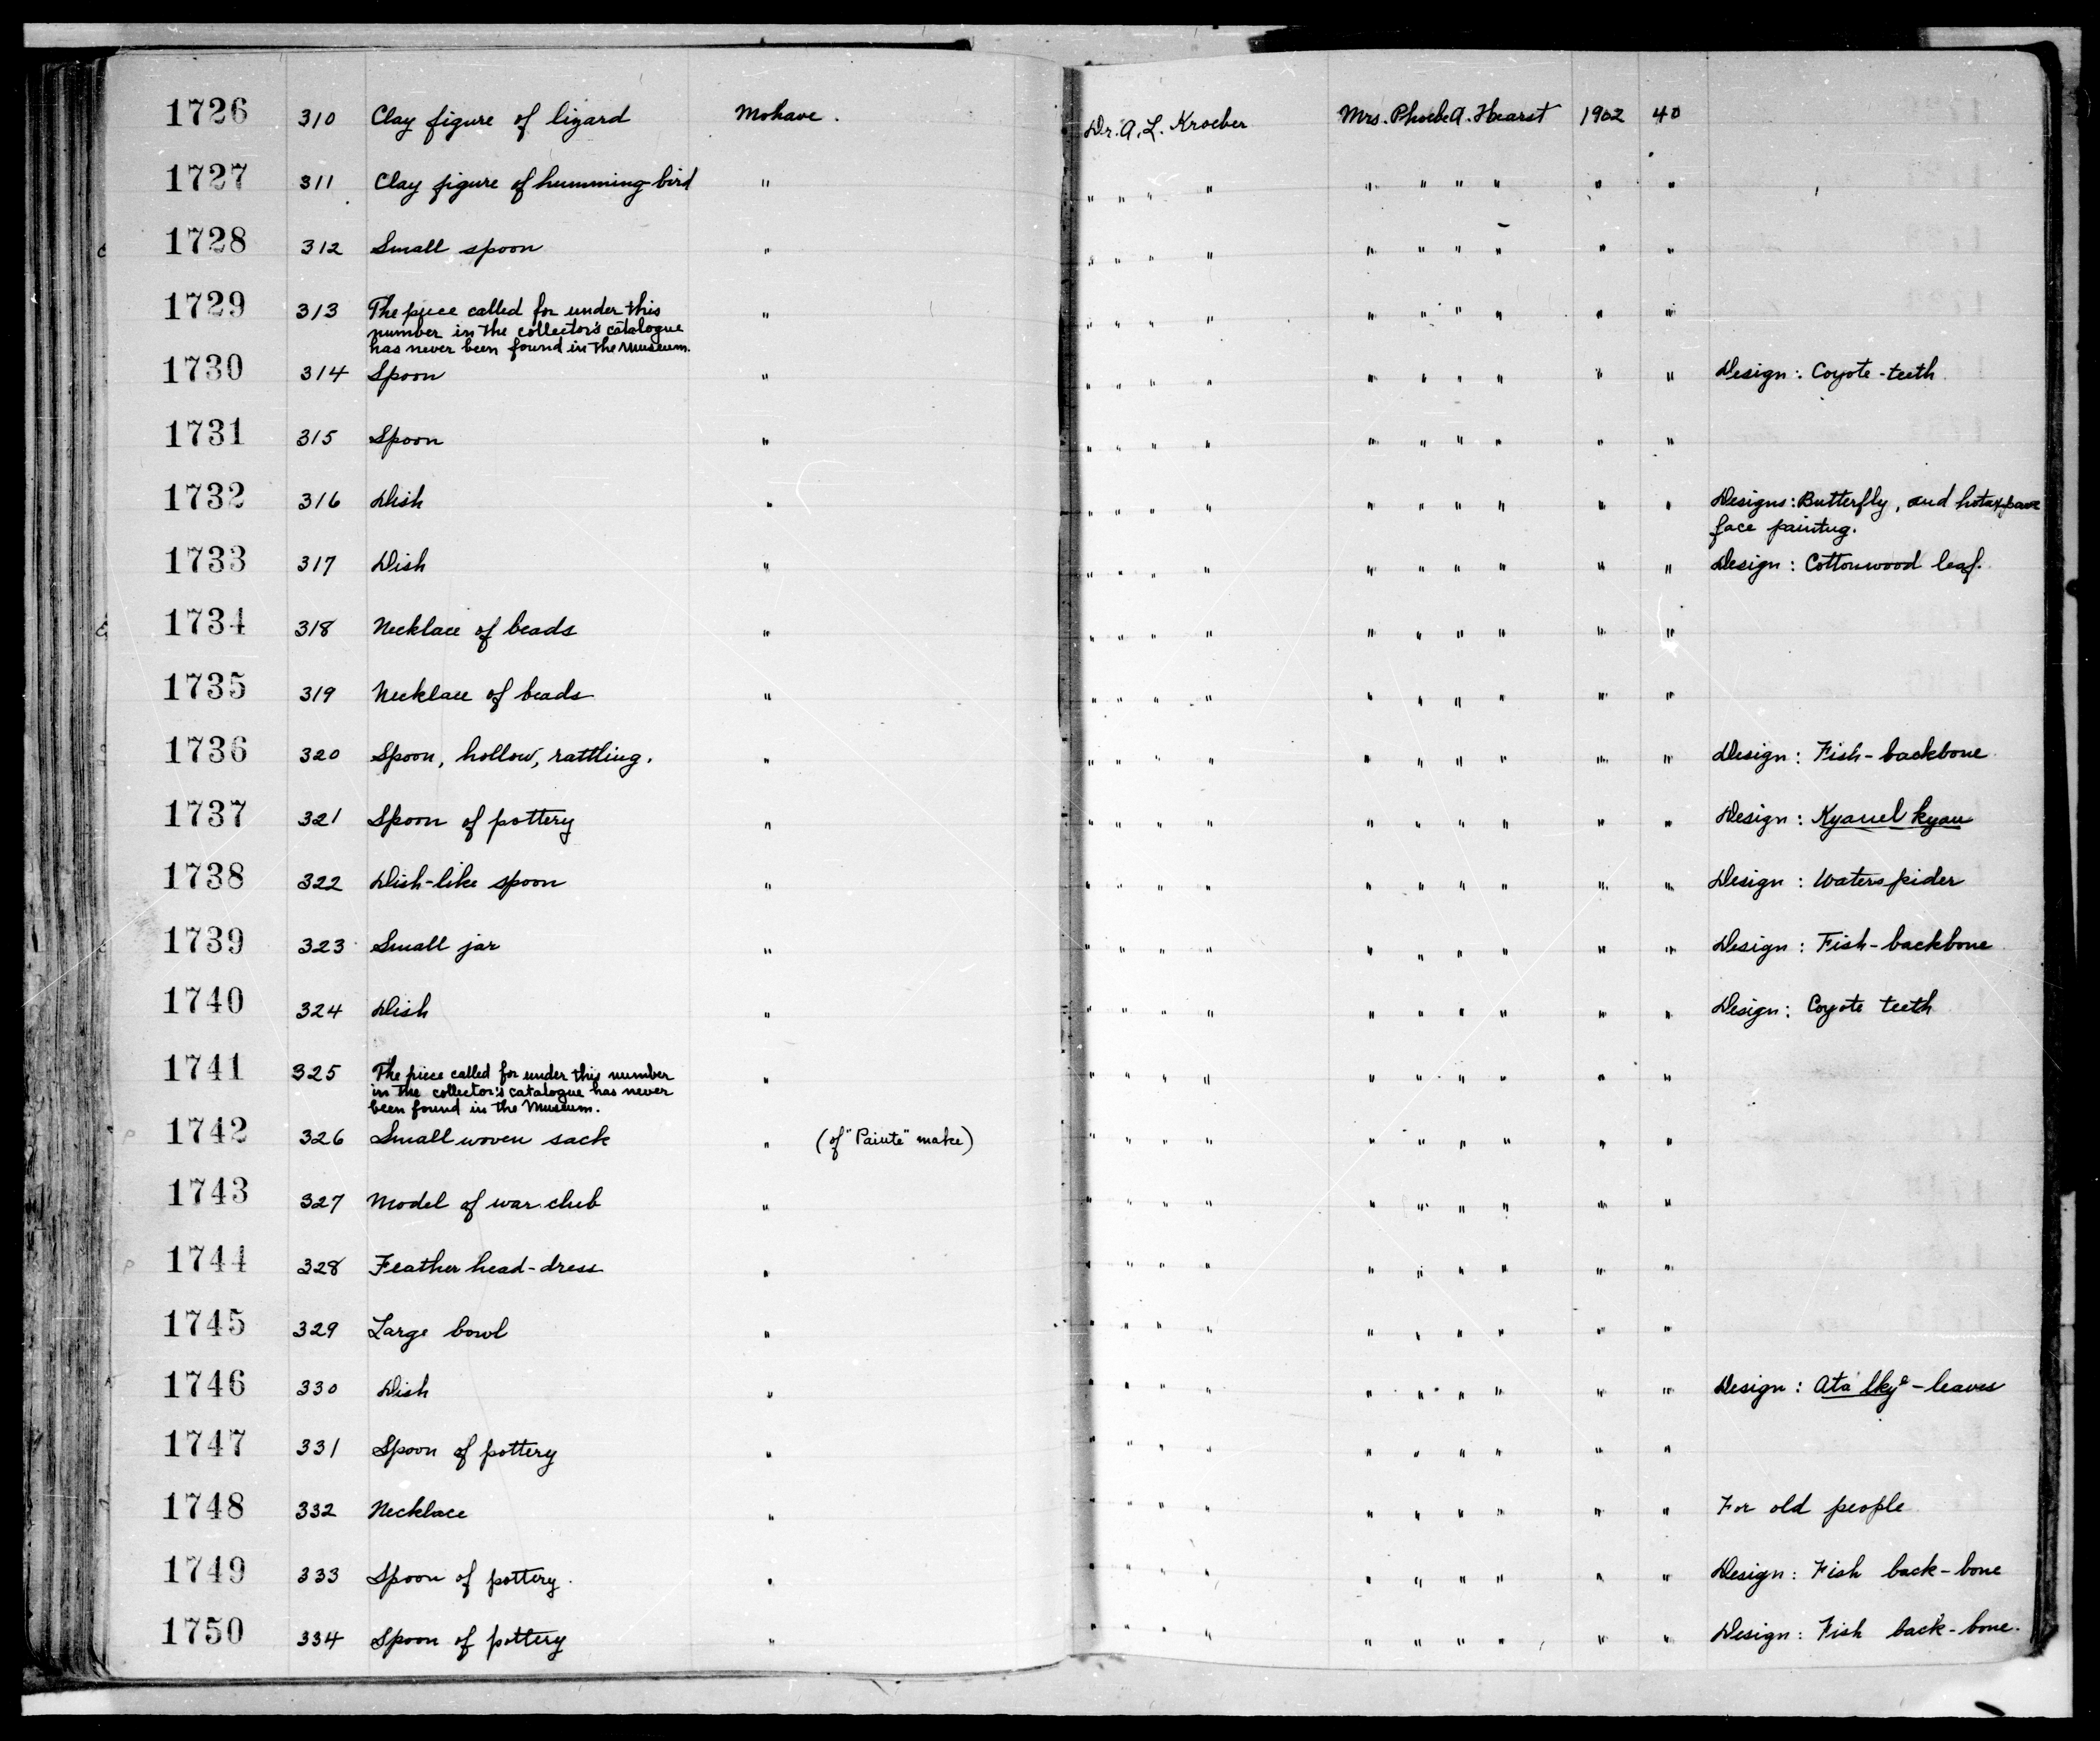 1726 310 Clay figure of lizard Mohave. Dr. A. L. Kroeber Mrs. Phoebe A. Hearst 1902 40
1727 311 Clay figure of humming-bird " " " " " " " " " " "
1728 312 Small spoon " " " " " " " " " " "
1729 313 The piece called for under this " " " " " " " " " " "
number in the collector's catalogue
has never been found in the Museum.
1730 314 Spoon " " " " " " " " " " " Design: Coyote-teeth
1731 315 Spoon " " " " " " " " " " "
1732 316 Dish " " " " " " " " " " " Designs: Butterfly, and
face paintng.
1733 317 Dish " " " " " " " " " " " Design: Cottonwood leaf.
1734 318 Necklace of beads " " " " " " " " " " "
1735 319 Necklace of beads " " " " " " " " " " "
1736 320 Spoon, hollow, rattling. " " " " " " " " " " " Design: Fish-backbone
1737 321 Spoon of pottery " " " " " " " " " " " Design:
1738 322 Dish-like spoon " " " " " " " " " " " Design: Waterspider
1739 323 Small jar " " " " " " " " " " " Design: Fish-backbone
1740 324 Dish " " " " " " " " " " " Design: Coyote teeth
1741 325 The piece called for under this number " " " " " " " " " " "
in the collector's catalogue has never
been found in the Museum.
1742 326 Small woven sack " (of "Paiute" make) " " " " " " " " " "
1743 327 Model of war club " " " " " " " " " " "
1744 328 Feather head-dress " " " " " " " " " " "
1745 329 Large bowl " " " " " " " " " " "
1746 330 Dish " " " " " " " " " " " Design: -leaves
1747 331 Spoon of pottery " " " " " " " " " " "
1748 332 Necklace " " " " " " " " " " " For old people
1749 333 Spoon of pottery. " " " " " " " " " " " Design: Fish back-bone
1750 334 Spoon of pottery " " " " " " " " " " " Design: Fish back-bone.